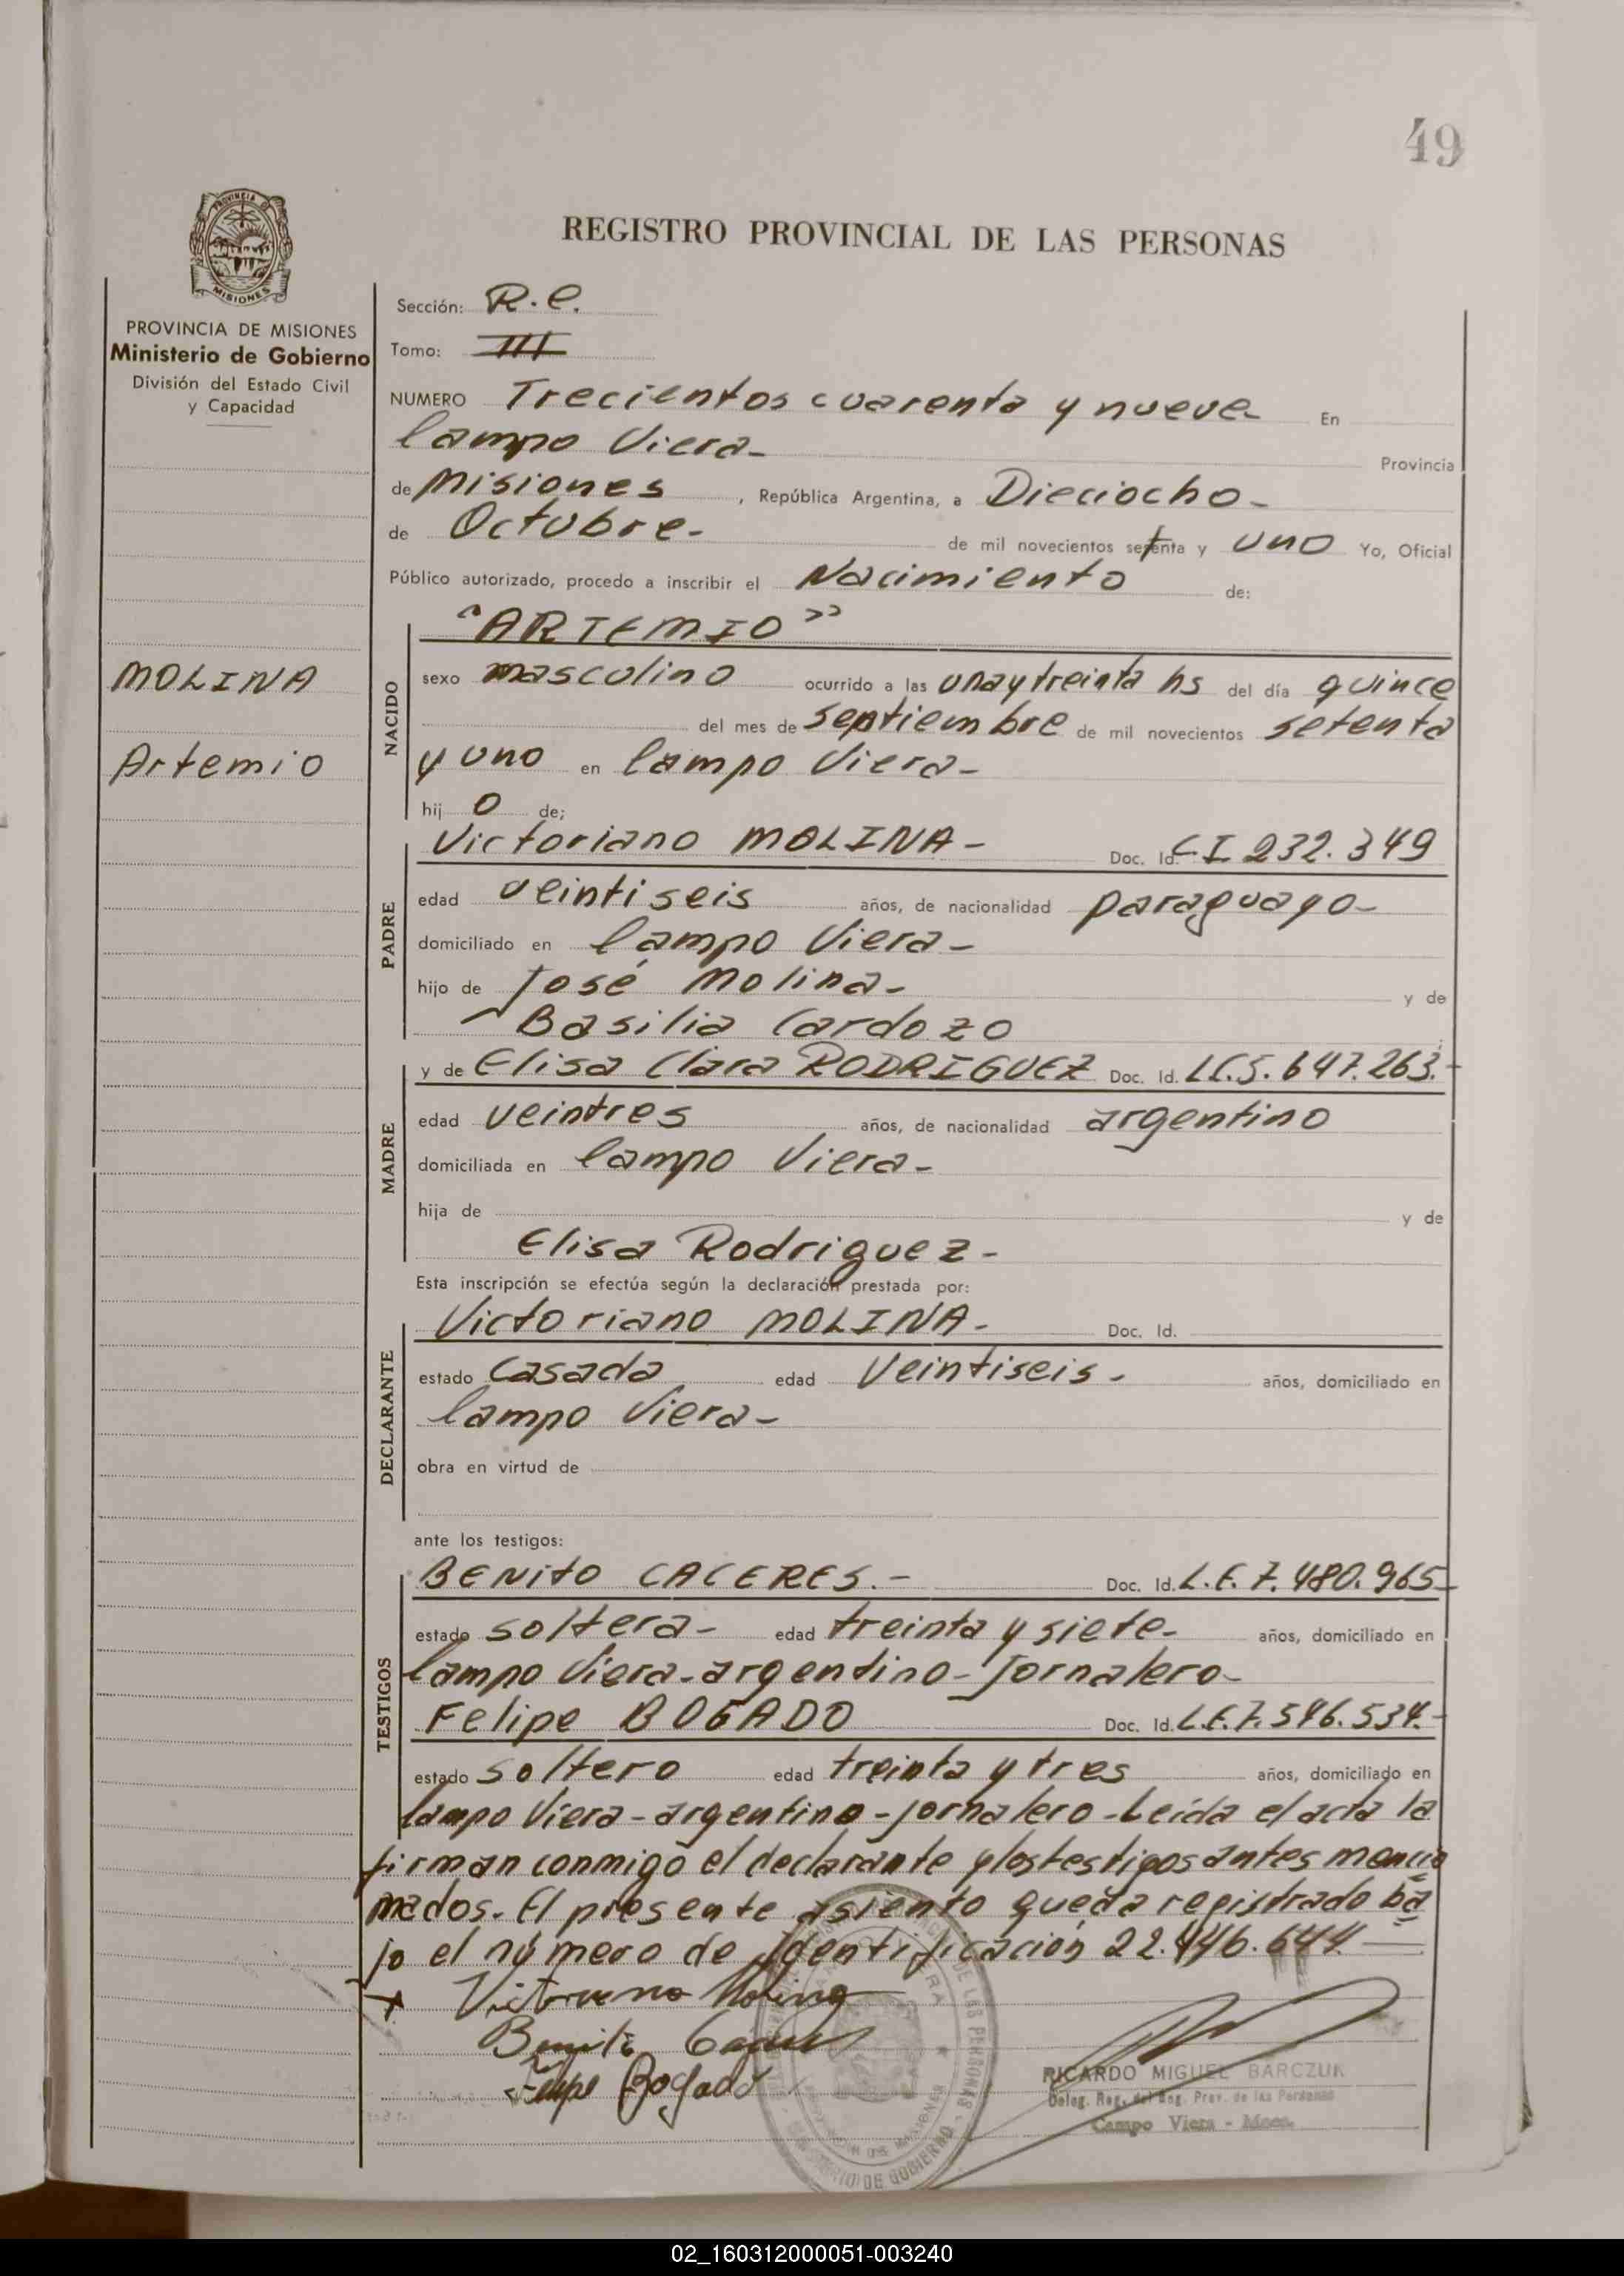 49
REGISTRO PROVINCIAL DE LAS PERSONAS
PROVINCIA
MISIONES
PROVINCIA DE MISIONES
Ministerio de Gobierno
División del Estado Civil
y Capacidad
MOLINA
Artemio
Sección: R.C.
Tomo: III
NUMERO Trecientos cuarenta y nueve- En
Campo Viera- Provincia
de Misiones, República Argentina, a Dieciocho-
de Octubre- de mil novecientos setenta y uno Yo, Oficial
Público autorizado, procedo a inscribir el Nacimiento de:
"ARTEMIO"
NACIDO
sexo masculino ocurrido a las una y treinta hs del día quince
del mes de septiembre de mil novecientos setenta
y uno en Campo Viera-
hij o de;
PADRE
Victoriano MOLINA- Doc. Id. C I 232.349
edad veintiseis años, de nacionalidad paraguayo-
domiciliado en Campo Viera-
hijo de José Molina- y de
Basilia Cardozo
MADRE
y de Elisa Clara RODRIGUEZ Doc. Id. LC.5.647.263.-
edad veintres años, de nacionalidad argentino
domiciliada en Campo Viera-
hija de y de
Elisa Rodriguez-
Esta inscripción se efectúa según la declaración prestada por:
DECLARANTE
Victoriano MOLINA- Doc. Id.
estado Casada edad Veintiseis- años, domiciliado en
Campo Viera-
obra en virtud de
ante los testigos:
TESTIGOS
BENITO CACERES.- Doc. Id. L.E.7.480.965-
estado soltera- edad treinta y siete- años, domiciliado en
Campo Viera-argentino-Jornalero-
Felipe BOGADO Doc. Id. L.E.7.546.534.-
estado soltero edad treinta y tres años, domiciliado en
Campo Viera-argentino-jornalero-Leída el acta la
firman conmigo el declarante y los testigos antes mencio
nados. El presente asiento queda registrado ba
jo el número de Identificación 22.446.644
Victoriano Molina
Benito
Felipe Bogado
RICARDO MIGUEL BARCZUK
Deleg. Reg. del Reg. Prov. de las Personas
Campo Viera - Mnes.
02_160312000051-003240